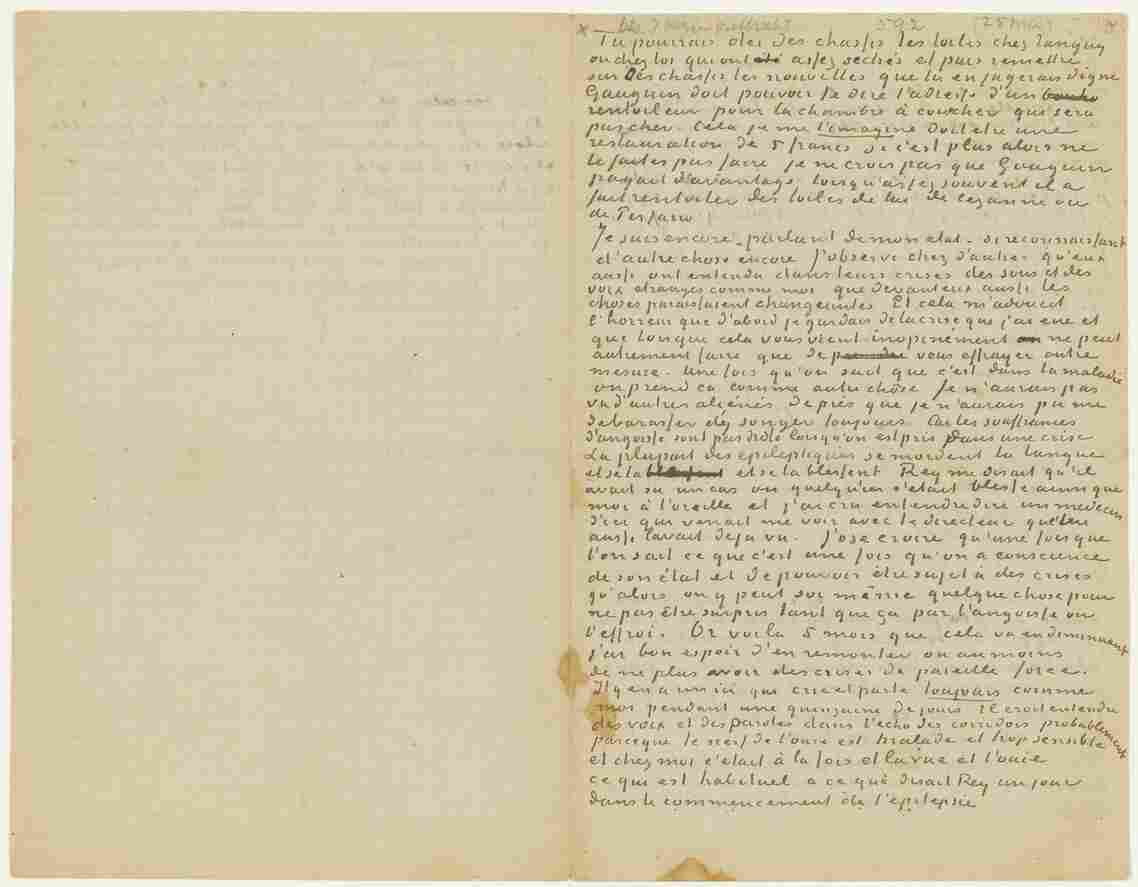 592 (25 mai
Tu pourrais oter des chassis les toiles chez Tanguy
ou chez toi qui ont été assez sechés et puis remettre
sur des chassis les nouvelles que tu en jugerais digne
Gauguin doit pouvoir te dire l'adresse d'un
rentoileur pour la chambre à coucher qui sera
pas cher. Cela je me l'imagine doit etre une
restauration de 5 francs si c'est plus alors ne
le faites pas faire je ne crois pas que Gauguin
payait d'avantage lorsqu'assez souvent il a
fait rentoiler des toiles de lui de Cezanne ou
de Pissarro
Je suis encore _ parlant de mon etat _ si reconnaissant
d'autre chose encore J'observe chez d'autres qu'eux
aussi ont entendu dans leurs crises des sons et des
voix etranges comme moi que devant eux aussi les
choses paraissaient changeantes. Et cela m'adoucit
l'horreur que d'abord je gardais de la crise que j'ai eue et
que lorsque cela vous vient inopinément ne peut
autrement faire que de vous effrayer outre
mesure. Une fois qu'on sait que c'est dans la maladie
on prend ca comme autre chose Je n'aurais pas
vu d'autres aliénés de près que je n'aurais pu me
debarasser d'y songer toujours. Car les souffrances
d'angoisse sont pas drole lorsqu'on est pris dans une crise
La plupart des epileptiques se mordent la langue
et se la et se la blessent Rey me disait qu'il
avait vu un cas ou quelqu'un s'etait blessé ainsi que
moi à l'oreille et j'ai cru entendre dire un medecin
d'ici qui venait me voir avec le directeur que lui
aussi l'avait deja vu. J'ose croire qu'une fois que
l'on sait ce que c'est une fois qu'on a conscience
de son état et de pouvoir être sujet à des crises
qu'alors on y peut soi même quelque chose pour
ne pas être surpris tant que ça par l'angoisse ou
l'effroi. Or voila 5 mois que cela va en diminuant
j'ai bon espoir d'en remonter ou au moins
de ne plus avoir des crises de pareille force.
Il y en a un ici qui crie et parle toujours comme
moi pendant une quinzaine de jours il croit entendre
des voix et des paroles dans l'echo des corridors probablement
parceque le nerf de l'ouie est malade et trop sensible
et chez moi c'etait à la fois et la vue et l'ouie
ce qui est habituel a ce que disait Rey un jour
dans le commencement de l'epilepsie